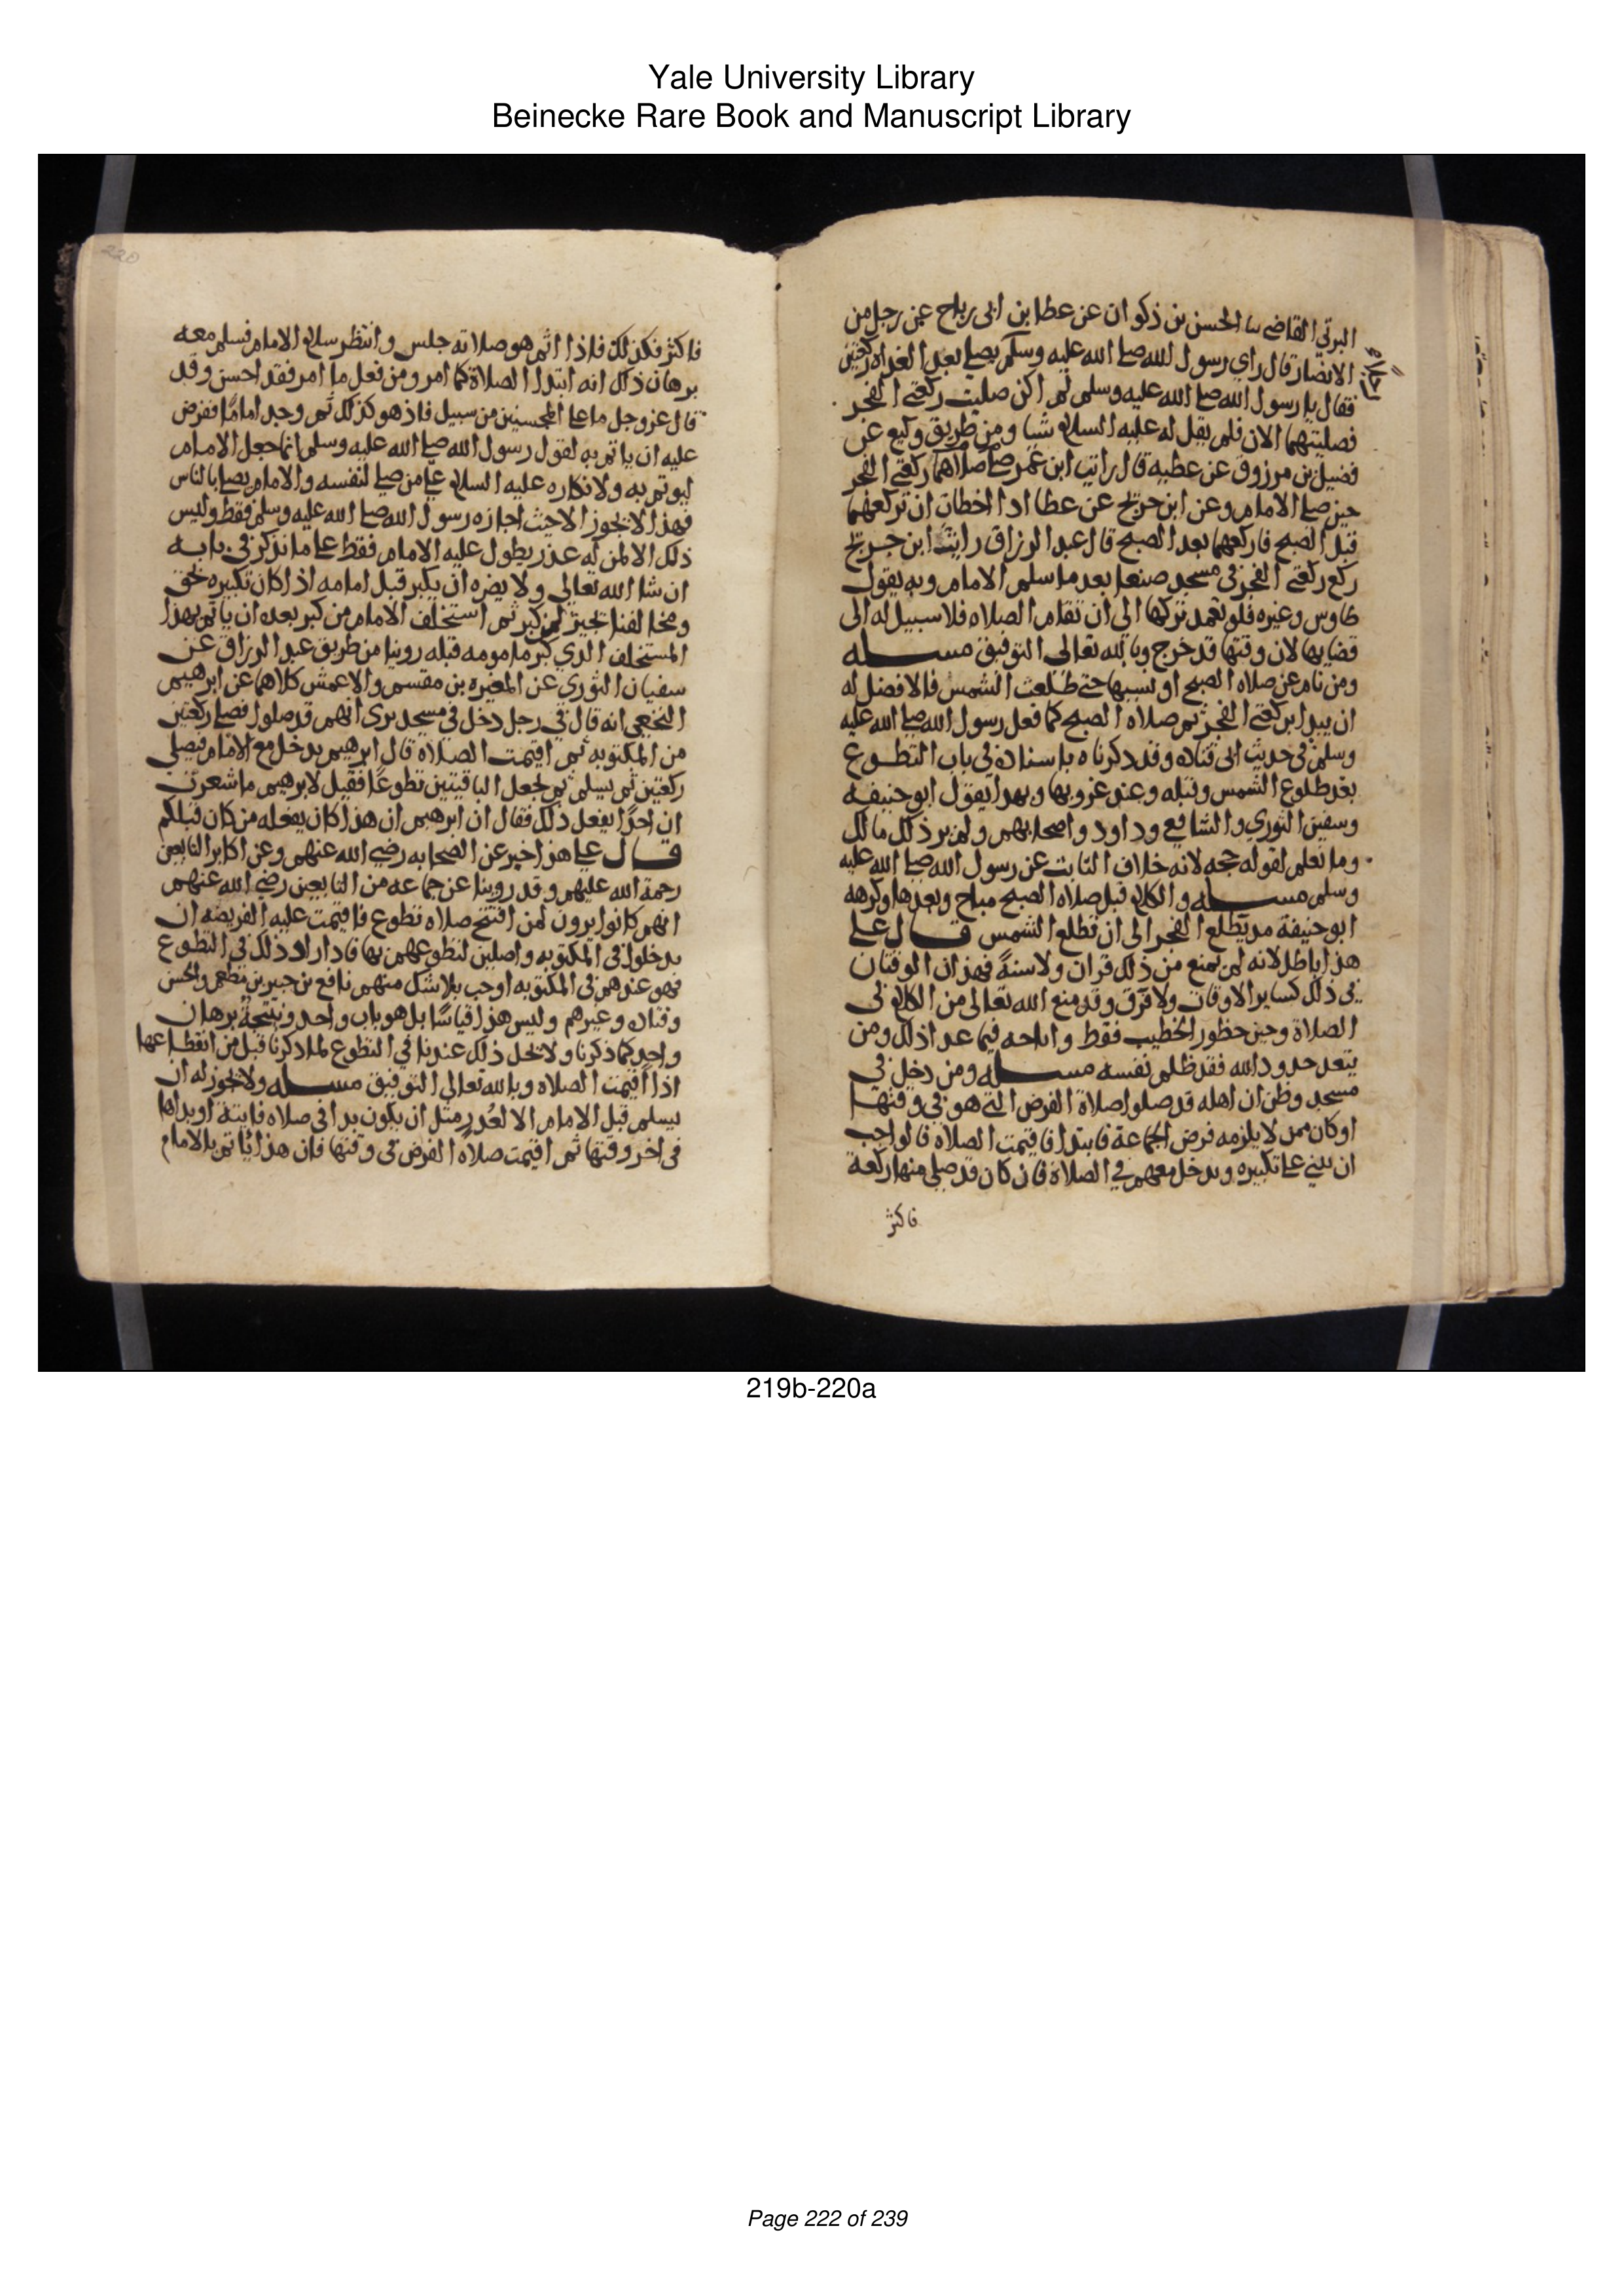 Yale University Library
Beinecke Rare Book and Manuscript Library
البرتي القاضي نا الحسن بن ذكوان عن عطا بن ابي رباح عن رجل من
الانصار قال راي رسول الله صلى الله عليه وسلم يصلي بعد الغداه ركعتين
فقال يا رسول الله صلى الله عليه وسلم لم اكن صليت ركعتي الفجر
فصليتهما الان فلم يقل له عليه السلام شيا ومن طريق وكيع عن
فضيل بن مرزوق عن عطيه قال رايت ابن عمر صلاهما ركعتي الفجر
حين صلى الامام وعن ابن جريج عن عطا اذا اخطات ان تركعهما
قبل الصبح فاركعهما بعد الصبح قال عبد الرزاق رايت ابن جريج
ركع ركعتي الفجر في مسجد صنعا بعد ما سلم الامام وبه يقول
طاوس وغيره فلو تعمد تركها الى ان تقام الصلاه فلا سبيل له الى
قضايها لان وقتها قد خرج وبالله تعالى التوفيق مسله
ومن نام عن صلاه الصبح او نسيها حتى طلعت الشمس فالافضل له
ان يبدا بركعتي الفجر ثم صلاه الصبح كما فعل رسول الله صلى الله عليه
وسلم في حديث ابي قتاده وقد ذكرناه باسناده في باب التطوع
بعد طلوع الشمس وقبله وعند غروبها وبهذا يقول ابو حنيفه
وسفين الثوري والشافعي وداود واصحابهم ولم ير ذلك مالك
وما نعلم لقوله حجه لانه خلاف الثابت عن رسول الله صلى الله عليه
وسلم مسله والكلام قبل صلاه الصبح مباح وبعدها وكرهه
ابو حنيفة مذ يطلع الفجر الى ان تطلع الشمس قال علي
هذا باطل لانه لم يمنع من ذلك قران ولا سنة فهذان الوقتان
في ذلك كساير الاوقات ولا فرق وقد منع الله تعالى من الكلام في
الصلاة وحين حظور الخطيب فقط واباحه فيما عدا ذلك ومن
يتعد حدود الله فقد ظلم نفسه مسله ومن دخل في
مسجد وظن ان اهله قد صلوا صلاة الفرض التي هو في وقتها
او كان ممن لا يلزمه فرض الجماعة فابتدا فاقيمت الصلاه فالواجب
ان يبني على تكبيره ويدخل معهم في الصلاة فان كان قد صلى منها ركعة
فاكثر
220
فاكثر فكذلك فاذا اتم هو صلاته جلس وانتظر سلام الامام فسلم معه
برهان ذلك انه ابتدا الصلاة كما امر ومن فعل ما امر فقد احسن وقد
قال عز وجل ما على المحسنين من سبيل فاذ هو كذلك ثم وجد اماما ففرض
عليه ان ياتم به لقول رسول الله صلى الله عليه وسلم انما جعل الامام
ليوتم به ولانكاره عليه السلام على من صلى لنفسه والامام يصلي بالناس
فهذا لا يجوز الا حيث اجازه رسول الله صلى الله عليه وسلم فقط وليس
ذلك الا لمن له عذر يطول عليه الامام فقط على ما نذكر في بابه
ان شا الله تعالى ولا يضره ان يكبر قبل امامه اذا كان تكبيره بحق
ومخالفنا يجيز لمن كبر ثم استخلف الامام من كبر بعده ان ياتم بهذا
المستخلف الذي كبر مامومه قبله روينا من طريق عبد الرزاق عن
سفيان الثوري عن المغيره بن مقسم والاعمش كلاهما عن ابرهيم
النخعي انه قال في رجل دخل في مسجد يرى انهم قد صلوا فصلى ركعتين
من المكتوبه ثم اقيمت الصلاة قال ابرهيم يدخل مع الامام فيصلي
ركعتين ثم يسلم ثم يجعل الباقيتين تطوعا فقيل لابرهيم ما شعرت
ان احدا يفعل ذلك فقال ان ابرهيم ان هذا كان يفعله من كان قبلكم
قال علي هذا خبر عن الصحابه رضي الله عنهم وعن اكابر التابعين
رحمة الله عليهم وقد روينا عن جماعه من التابعين رضي الله عنهم
انهم كانوا يرون لمن افتتح صلاه تطوع فاقيمت عليه الفريضه ان
يدخلوا في المكتوبه واصلين لتطوعهم بها فاذا راوا ذلك في التطوع
فهو عندهم في المكتوبه اوجب بلا شك منهم نافع بن جبير بن مطعم والحسن
وقتاده وغيرهم وليس هذا قياسا بل هو باب واحد ونتيجة برهان
واحد كما ذكرنا ولا يحل ذلك عندنا في التطوع لما ذكرنا قبل من انقطاعها
اذا اقيمت الصلاه وبالله تعالى التوفيق مسله ولا يجوز له ان
يسلم قبل الامام الا لعذر مثل ان يكون بدا في صلاه فايتة او بداها
في اخر وقتها ثم اقيمت صلاه الفرض في وقتها فان هذا ياتم بالامام
219b-220a
Page 222 of 239